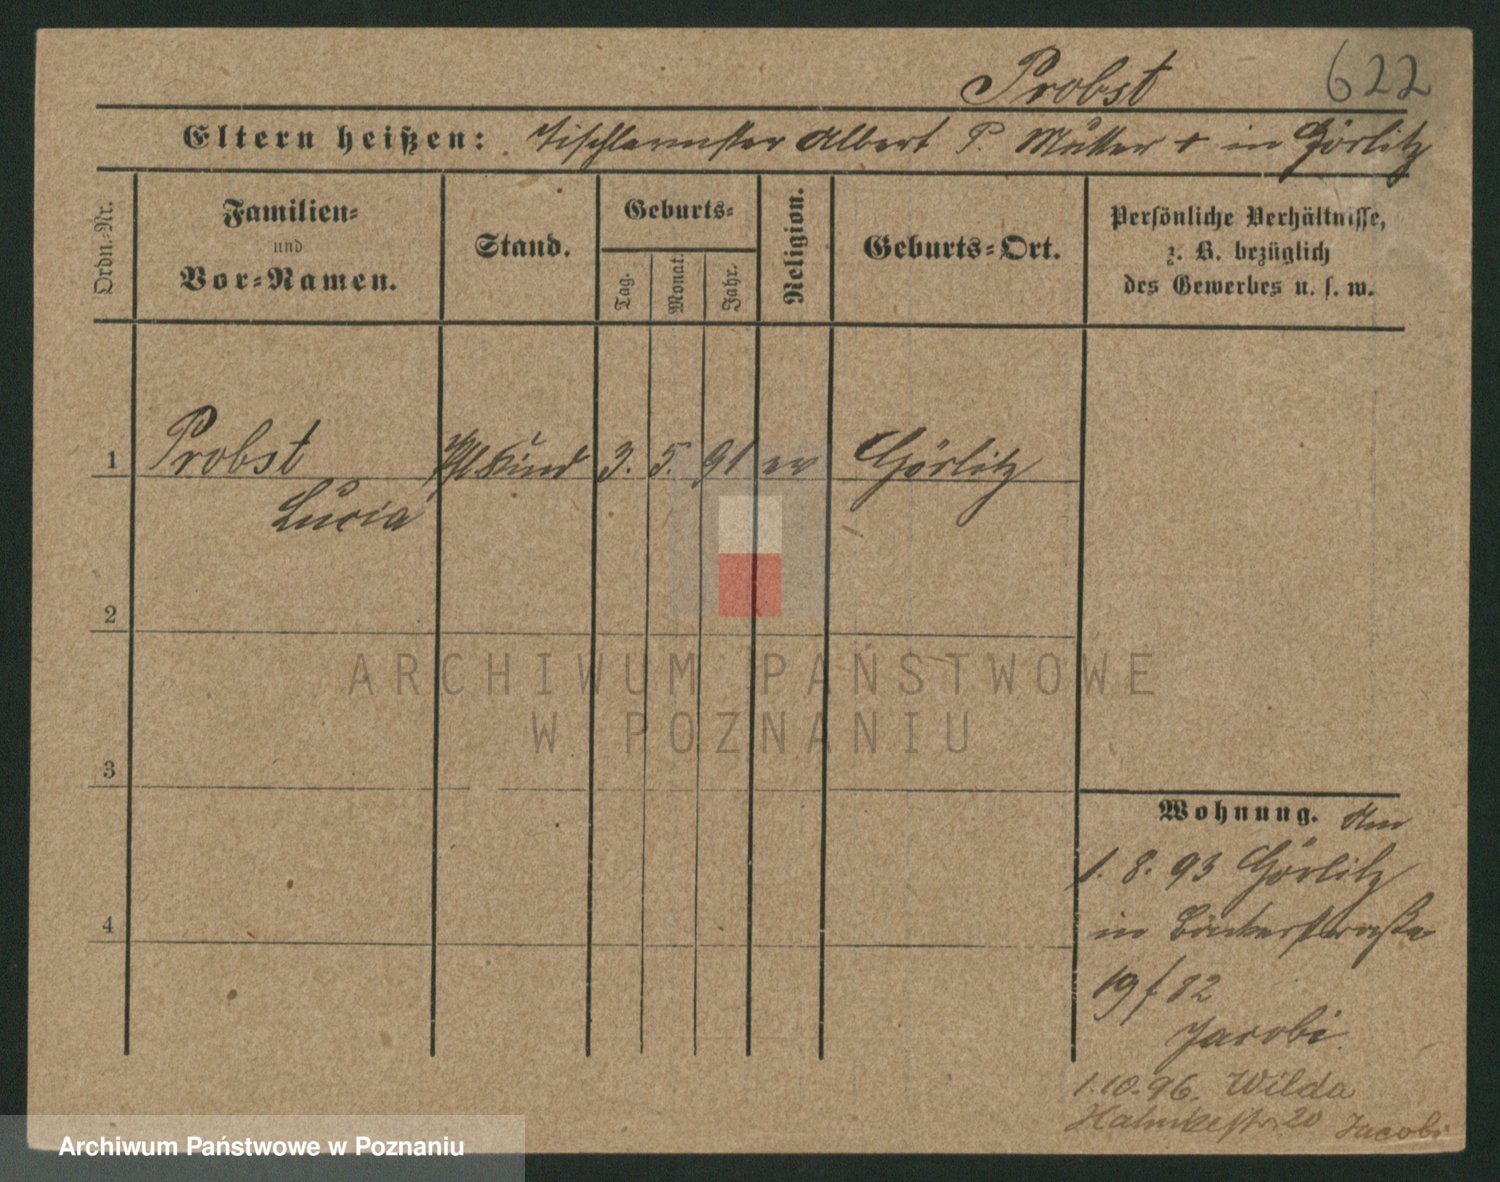 Probst 622
Eltern heißen: Tischlermster Albert P. Mutter + in Görlitz
Ordn.-Nr.
Familien-
und
Vor-Namen.
Stand.
Geburts-
Tag.
Monat.
Jahr.
Religion.
Geburts-Ort.
Persönliche Verhältnisse,
z. B. bezüglich
des Gewerbes u. s. w.
1 Probst Pfl Kind 3. 5. 91 ev Görlitz
Lucia
2
3
4
ARCHIWUM PAŃSTWOWE
W POZNANIU
Wohnung. Am
1. 8. 93 Görlitz
in Bäckerstraße
19 / 82
Jacobi.
1.10.96. Wilda
20 Jacobi
Archiwum Państwowe w Poznaniu